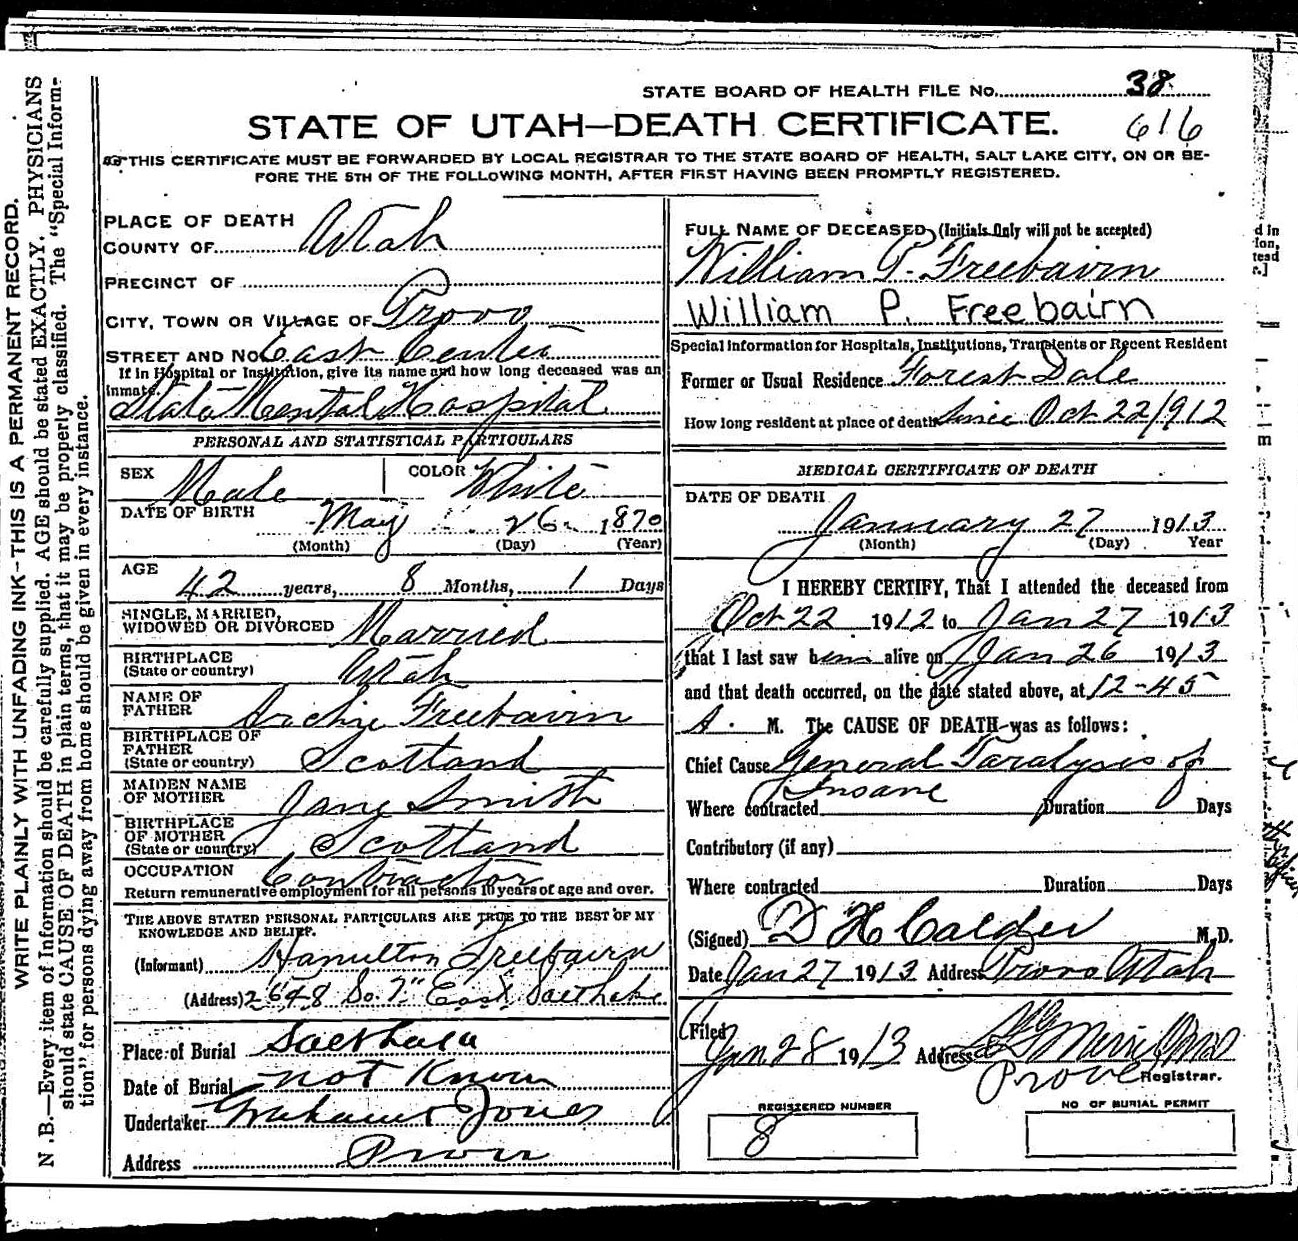 STATE BOARD OF HEALTH FILE No. 38
STATE OF UTAH—DEATH CERTIFICATE. 616
THIS CERTIFICATE MUST BE FORWARDED BY LOCAL REGISTRAR TO THE STATE BOARD OF HEALTH, SALT LAKE CITY, ON OR BE-
FORE THE 5TH OF THE FOLLOWING MONTH, AFTER FIRST HAVING BEEN PROMPTLY REGISTERED.
WRITE PLAINLY WITH UNFADING INK—THIS IS A PERMANENT RECORD.
N.B.—Every item of Information should be carefully supplied. AGE should be stated EXACTLY. PHYSICIANS
should state CAUSE OF DEATH in plain terms, that it may be properly classified. The "Special Inform-
tion" for persons dying away from home should be given in every instance.
PLACE OF DEATH
COUNTY OF Utah
PRECINCT OF
CITY, TOWN OR VILLAGE OF Provo
STREET AND No. East Center
If in Hospital or Institution, give its name and how long deceased was an
inmate. State Mental Hospital
PERSONAL AND STATISTICAL PARTICULARS
SEX Male COLOR White
DATE OF BIRTH May 26 1870
(Month) (Day) (Year)
AGE 42 years, 8 Months, 1 Days
SINGLE, MARRIED,
WIDOWED OR DIVORCED Married
BIRTHPLACE
(State or country) Utah
NAME OF
FATHER Archie Freebairn
BIRTHPLACE OF
FATHER
(State or country) Scotland
MAIDEN NAME
OF MOTHER Jane Smith
BIRTHPLACE
OF MOTHER
(State or country) Scotland
OCCUPATION Contractor
Return remunerative employment for all persons 10 years of age and over.
THE ABOVE STATED PERSONAL PARTICULARS ARE TRUE TO THE BEST OF MY
KNOWLEDGE AND BELIEF.
(Informant) Hamilton Freebairn
(Address) 2648 So. 7" East Salt Lake
Place of Burial Salt Lake
Date of Burial not Known
Undertaker Jones
Address Provo
FULL NAME OF DECEASED (Initials Only will not be accepted)
William P. Freebairn
William P. Freebairn
Special information for Hospitals, Institutions, Transients or Recent Resident
Former or Usual Residence Forest Dale
How long resident at place of death Since Oct 22/912
MEDICAL CERTIFICATE OF DEATH
DATE OF DEATH
January 27 1913
(Month) (Day) Year
I HEREBY CERTIFY, That I attended the deceased from
Oct 22 1912 to Jan 27 1913
that I last saw him alive on Jan 26 1913
and that death occurred, on the date stated above, at 12-45
A. M. The CAUSE OF DEATH was as follows:
Chief Cause General Paralysis of
Insane
Where contracted Duration Days
Contributory (if any)
Where contracted Duration Days
(Signed) D H Calder M.D.
Date Jan 27 1913 Address Provo Utah
Filed
Jan 28 1913 Address
Provo Registrar.
REGISTERED NUMBER
8
NO OF BURIAL PERMIT